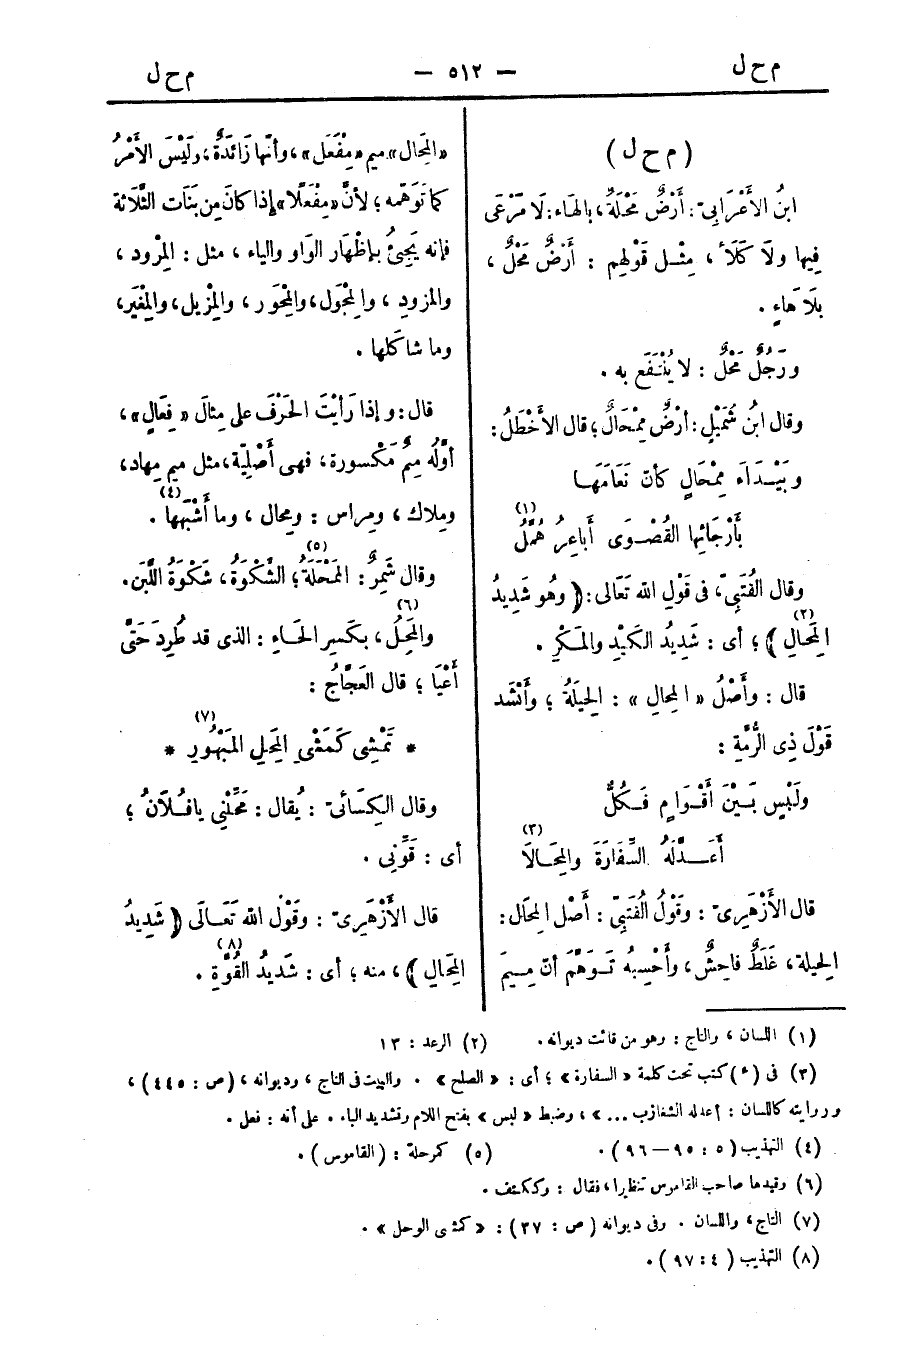 م ح ل — ٥١٢ — م ح ل
( م ح ل )
ابنُ الأَعْرَابِىّ : أَرْضٌ مَحْلَةٌ ، بالهَاء : لَا مَرْعَى
فِيها ولَا كَلَأَ ، مِثْـل قَوْلِهِم : أَرْضٌ مَحْلٌ ،
بِلَا هَاءٍ .
ورَجُلٌ مَحْلٌ : لا يُنْتَفَع به .
وقال ابنُ شُمَيْلٍ : أَرْضٌ مِمْحَالٌ ؛ قال الأَخْطَلُ :
وبَيْـدَاءَ مِمْحَالٍ كأنّ نَعَامَهَـا
بأَرْجَائِها القُصْـوَى أَبَاعِرُ هُمَّلُ (١)
وقال القُتَبِىّ ، فى قَوْلِ الله تَعَالَى : ( وهُو شَدِيدُ
المِحَالِ ) (٢) ؛ أى : شَدِيدُ الكَيْدِ والمَـكْرِ .
قال : وأَصْلُ « المِحالِ » : الحِيلَةُ ؛ وأَنْشَد
قَوْلَ ذِى الرُّمَّةِ :
ولَبْسٍ بَيْنَ أَقْـوَامٍ فَـكُلٌّ
أَعَـدَّلَهُ السِّفَارَةَ والمِحَـالَا (٣)
قال الأَزْهَرِىّ : وقَوْلُ القُتَبِىّ : أَصْل المِحَال :
الحِيلة ، غَلَطٌ فاحِشٌ ، وأَحْسِبُه تَـوَهَّمَ أنّ مِـيمَ
«المِحَال» ميم «مِفْعَل» ، وأنّها زَائدَةٌ ، ولَيْسَ الأمْرُ
كما تَوَهّمه ؛ لأنَّ «مِفْعَلًا» إذا كانَ مِن بَنَات الثَّلَاثة
فإنه يَجِىءُ بإظْهَار الوَاو والياء ، مثل : المِرْود ،
والمزود ، والمِجْوَل ، والمِحْوَر ، والمِزْيل ، والمِغْيَر ،
وما شاكَلها .
قال : وإذا رَأَيْتَ الحَرْفَ على مِثالَ « فِعَالٍ » ،
أَوَّلُه مِيمٌ مَكْسورة ، فهى أَصْلِيّة ، مثل ميم مِهاد ،
ومِلاك ، ومِراس : ومِحال ، وما أَشْبَهها (٤) .
وقال شَمِرٌ : المَحْلَةُ (٥) ؛ الشَّكْوَةُ ، شَكْوَةُ اللَّبَن .
والمَحِلُ (٦) ، بكَسرِ الحَـاءِ : الذى قد طُرِدَ حَتَّى
أَعْيَا ؛ قال العَجَّاجُ :
* تَمْشِى كَمَشْىِ المَحِلِ المَبْهُورِ (٧) *
وقال الكِسَائىّ : يُقال : مَحِّلْنِى يا فُـلَانُ ؛
أى : قَوِّنِى .
قال الأَزْهَرِىّ : وقَوْل الله تَعَالَى ( شَدِيدُ
المِحَالِ ) (٨) ، منه ؛ أى : شَدِيدُ القُوَّةِ .
(١) اللسان ، والتاج : وهو من فائت ديوانه . (٢) الرعد : ١٣
(٣) فى (م) كتب تحت كلمة « السفارة » ؛ أى : « الصلح » . والبيت فى التاج ، وديوانه ، (ص : ٤٤٥) ،
وروايته كاللسان : أعدله الشغازب ... » ، وضبط « لبس » بفتح اللام وتشديد الباء . على أنه : فعل .
(٤) التهذيب (٥ : ٩٥ – ٩٦) . (٥) كمرحلة : (القاموس) .
(٦) وقيدها صاحب القاموس تنظيرا ، فقال : وككتف .
(٧) التاج ، واللسان . وفى ديوانه (ص : ٢٧) : « كمشى الوحل » .
(٨) التهذيب (٤ : ٩٧) .